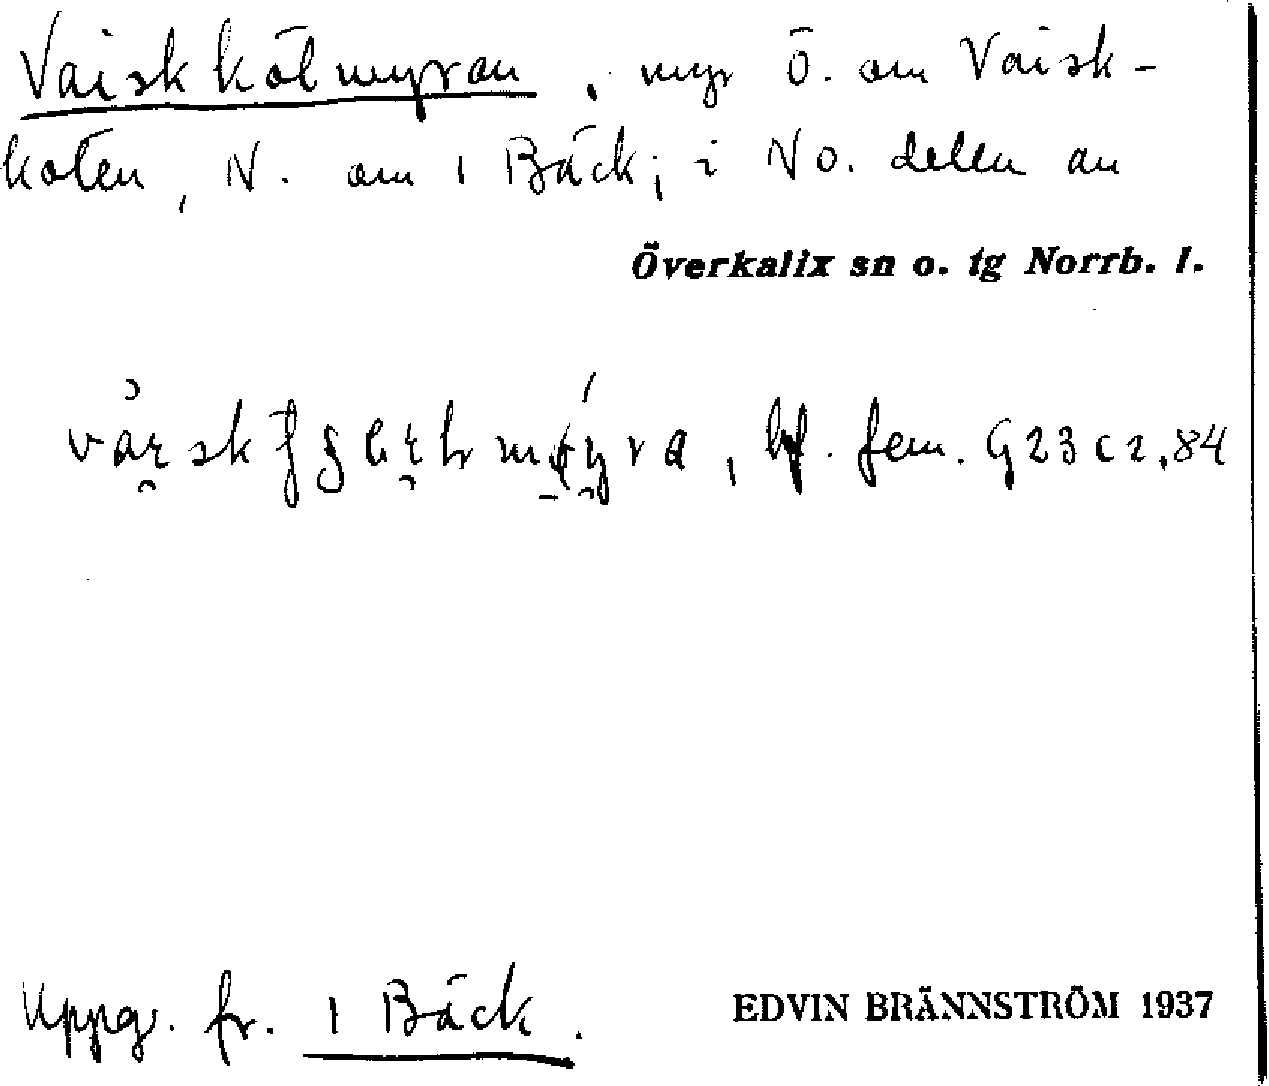 Vaiskkölmyran, myr Ö. om Vaisk-
kölen, N. om 1 Bäck; i NO. delen av
Överkalix sn o. tg Norrb. l.
, bf. fem. G23c2,84
Uppg. fr. 1 Bäck.
EDVIN BRÄNNSTRÖM 1937